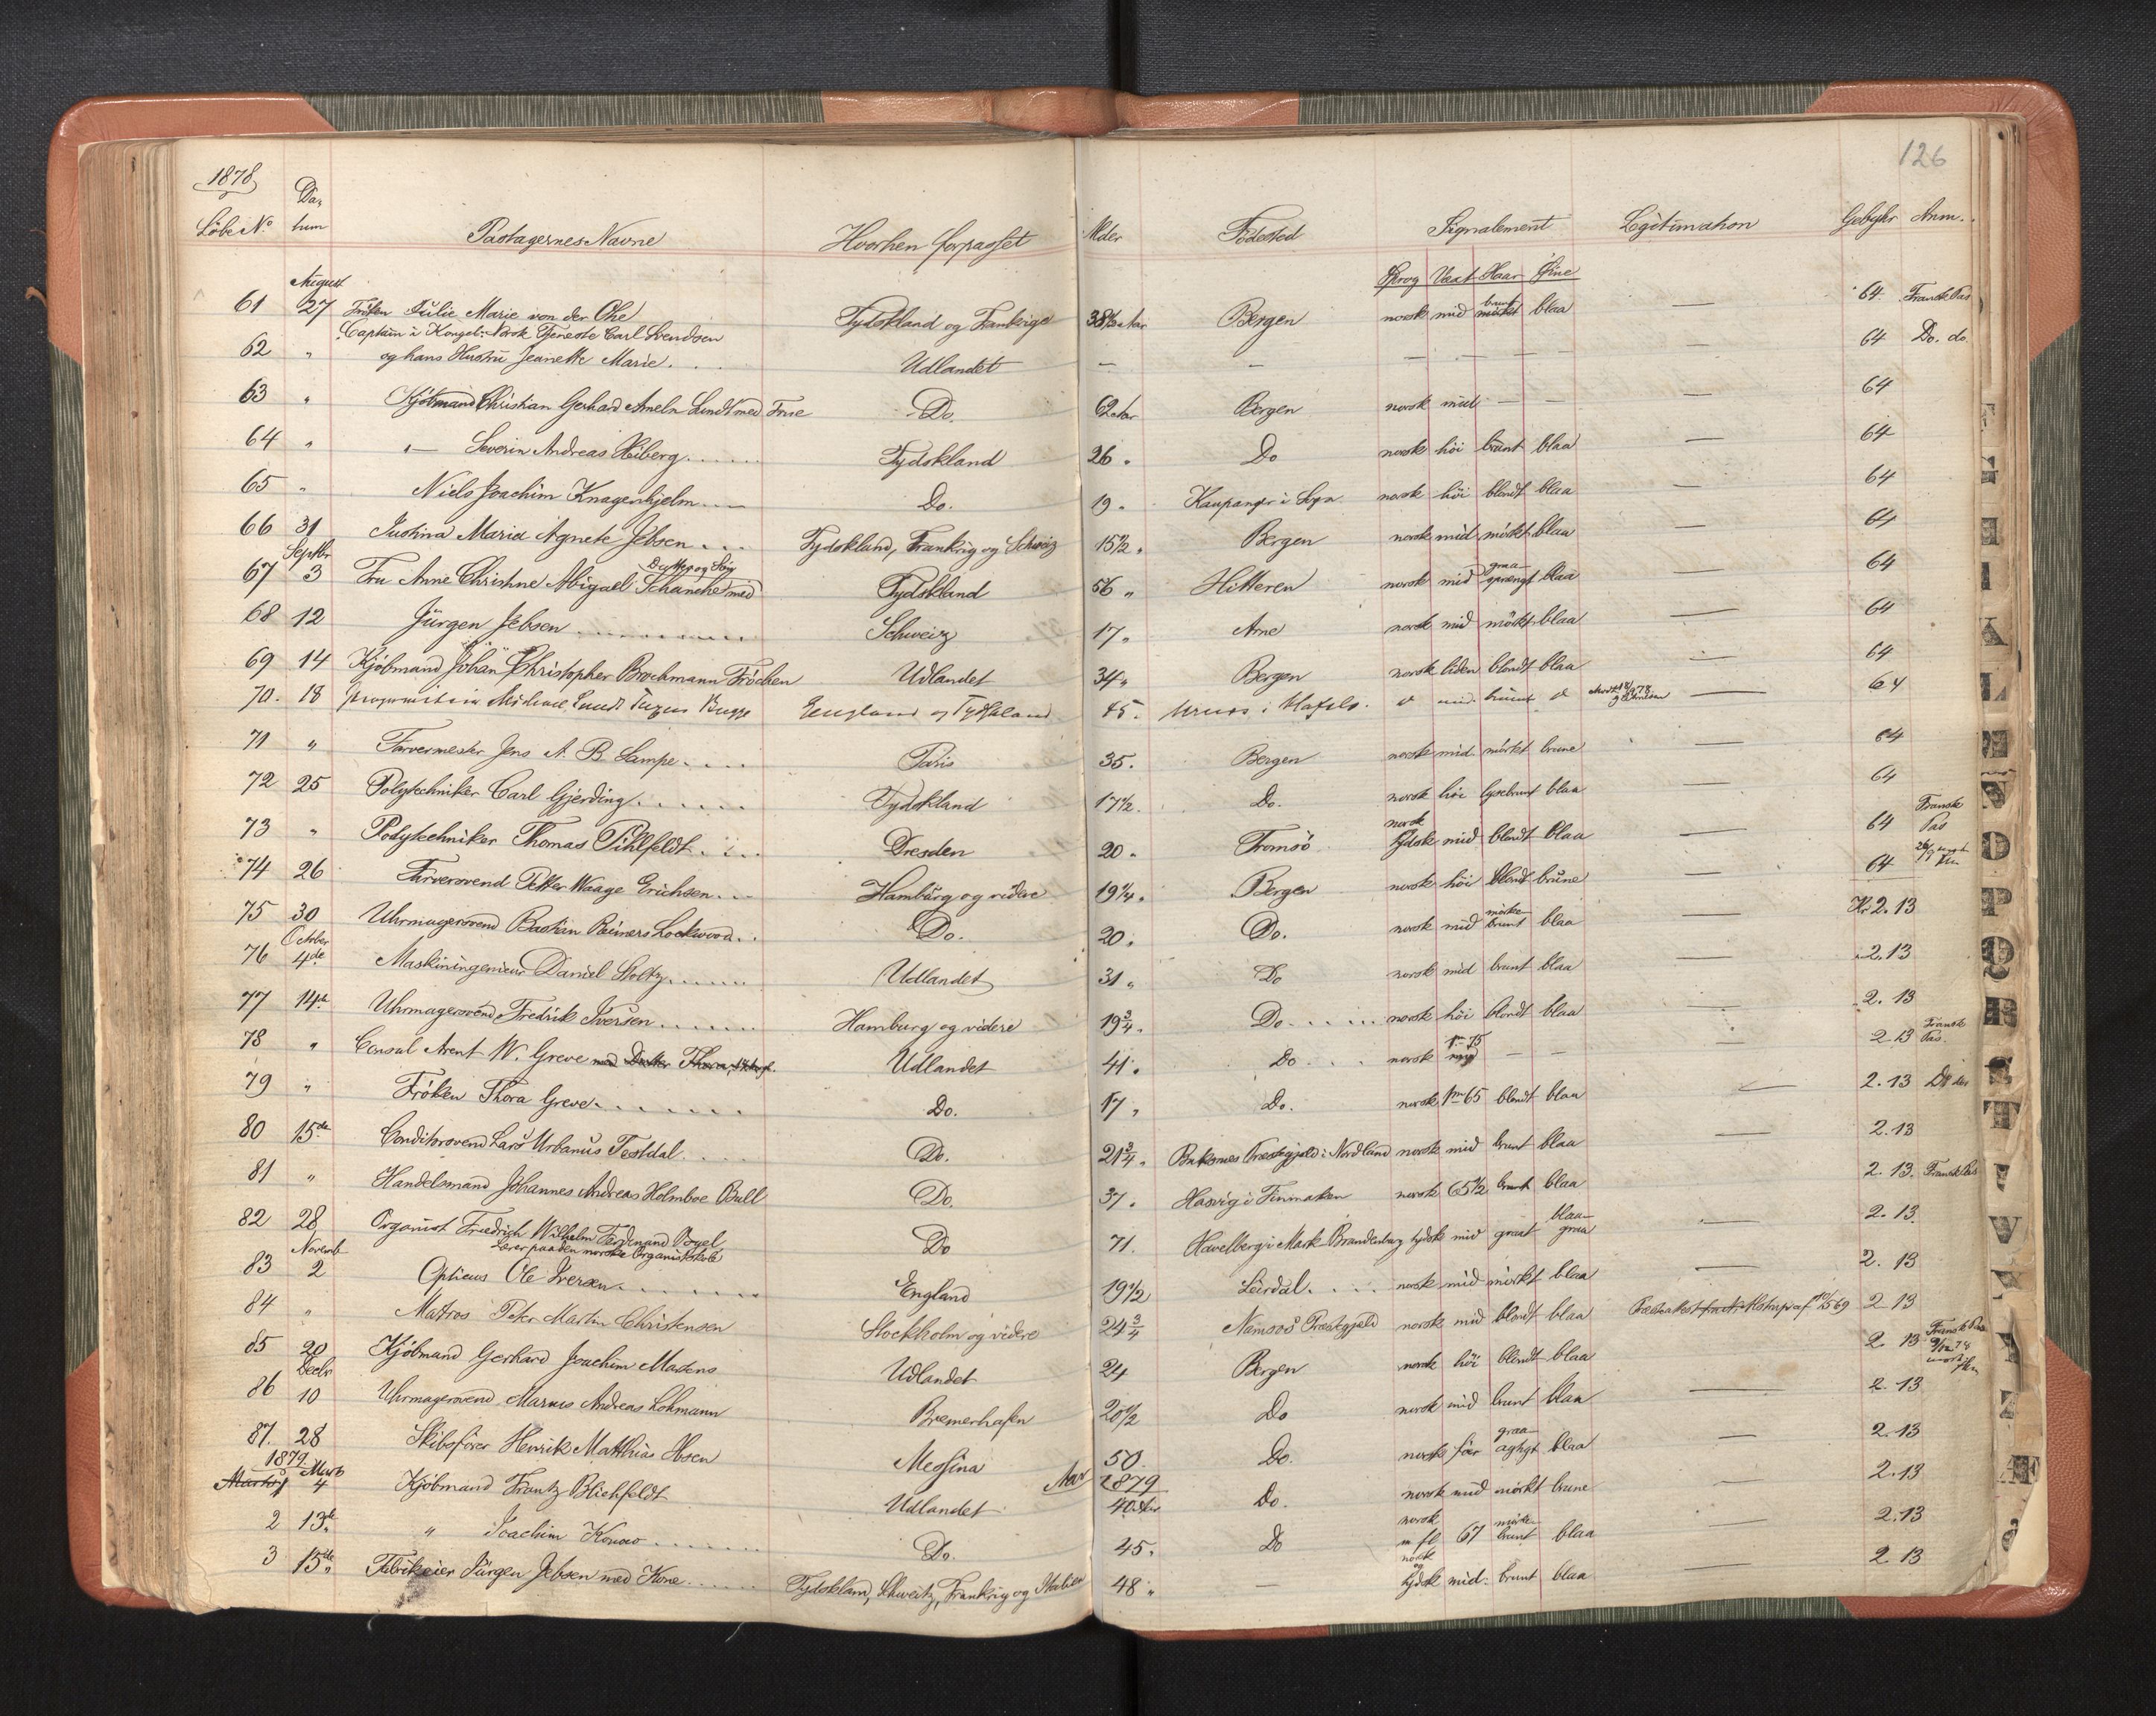 1878
126
Löbe No. Da- tum Pastagernes Navne Hvorhen forpasset Alder Födested Signalement Legitimation Gebyhr Anm.
Sprog Væxt Haar Øine
August
61 27 Fröken Julie Marie von der Ohe Tydskland og Frankrige 38½ Aar Bergen norsk mid brunt mörket blaa — 64 Fransk Pas
Captain i Kongel. Norsk Tjeneste Carl Svendsen
62 " og hans Hustru Jeanette Marie.... Udlandet — — — — — — — 64 Do. do.
63 " Kjöbmand Christian Gerhard Ameln Lundt med Frue Do. 62 Aar Bergen norsk mid — — — 64
64 " "— Severin Andreas Heiberg...... Tydskland 26 " Do norsk höi brunt blaa — 64
65 " Niels Joachim Knagenhjelm.... Do. 19 " Kaupanger i Sogn norsk höi blondt blaa — 64
66 31 Justina Maria Agnete Jebsen.... Tydskland, Frankrig og Schweiz 15½ " Bergen norsk mid mörkt blaa — 64
Septbr
67 3 Fru Anne Christine Abigael Schanche med Datter og Tydskland 56 " Hitteren norsk mid graa- sprængt blaa — 64
68 12 Jürgen Jebsen ........... Schweiz 17 " Arne norsk mid mörkt blaa — 64
69 14 Kjöbmand Johan Christopher Brochmann Fröchen Udlandet 34 " Bergen norsk liden blondt blaa — 64
70. 18 Michael Lund Bugge England og Tydskland 45. i norsk mid brunt — 64
71 " Farvermester Jens A. B. Lampe.... Paris 35. Bergen norsk mid mörkt brune — 64
72 25 Polytechniker Carl Gjerding...... Tydskland 17½. Do. norsk höi lysebrunt blaa — 64
73 " Polytechniker Thomas Pihlfeldt.... Dresden 20 " Tromsö norsk tydsk mid blondt blaa — 64 Fransk Pas
74 26 Farversvend Petter Waage Erichsen... Hamburg og videre 19¼ " Bergen norsk höi blondt brune — 64
75 30 Uhrmagersvend Bastian Reimers Lockwood.. Do. 20 " Do. norsk mid mörke- brunt blaa — Kr 2.13
October
76 4de Maskiningenieur Daniel Stoltz...... Udlandet 31 " Do norsk mid brunt blaa — 2.13
77 14de Uhrmagersvend Fredrik Iversen....... Hamburg og videre 19¾ " Do...... norsk höi blondt blaa — 2.13
78 " Consul Arent W. Greve med Datter Thora, Udlandet 41 " Do.... norsk 1m 75 — — 2.13 Fransk Pas.
79 " Fröken Thora Greve........ Do. 17 " Do. norsk 1m 65 blondt blaa — 2.13 Do do
80 15de Conditorsvend Lars Urbanus Testdal.... Do. 21¾ " Buksnes Præstegjeld i Nordland norsk mid brunt blaa — 2.13
81 " Handelsmand Johannes Andreas Holmboe Bull Do. 37 " Hasvig i Finmarken norsk 65½ brunt blaa 2.13. Fransk Pas
82 28 Organist Friedrich Wilhelm Ferdinand Vogel Do 71. Havelberg i Mark Brandenburg tydsk mid graat blaa- graa — 2.13.
Lærer paa den norske Organistskole
Novemb
83 2 Opticus Ole Iversen........ England 19½ Leirdal..... norsk mid mörkt blaa — 2.13
84 " Matros Peter Martin Christensen Stockholm og videre 24¾ Namsos Præstegjeld norsk mid blondt blaa Præsteattest af 2.13
85 20 Kjöbmand Gerhard Joachim Madens Udlandet 24 Bergen norsk höi blondt blaa 2.13 Fransk Pas
Decbr
86 10 Uhrmagersvend Marius Andreas Lohmann Bremerhafen 20½ Do norsk mid brunt blaa — 2.13
87. 28 Skibsförer Henrik Matthias Ibsen Messina 50. Do. norskför graa- agtigt blaa — 2.13
1879 Aar 1879
Marts 1 Marts 4 Kjöbmand Frantz Blichfeldt Udlandet 40 Aar Do. norsk mid mörkt brune — 2.13
2 13de " Joachim Konow ....... Do. 45 " Do norsk m fl 67 mörke- brunt blaa 2.13
3 15de Fabrikeier Jürgen Jebsen med Kone....... Tydskland, Schweitz, Frankrig og Italien 48 " — norsk og tydsk mid. brunt blaa — 2.13
K
L
M
N
O
P
Q
R
S
T
V
Z
Æ